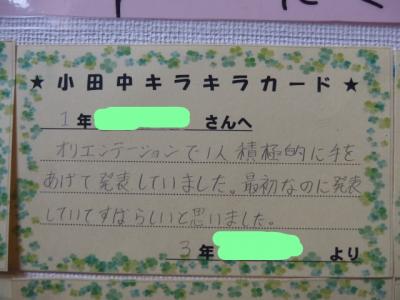 ★小田中キラキラカード★
1年 さんへ
オリエンテーションで1人積極的に手を
あげて発表していました。最初なのに発表
していてすばらしいと思いました。
3年 より